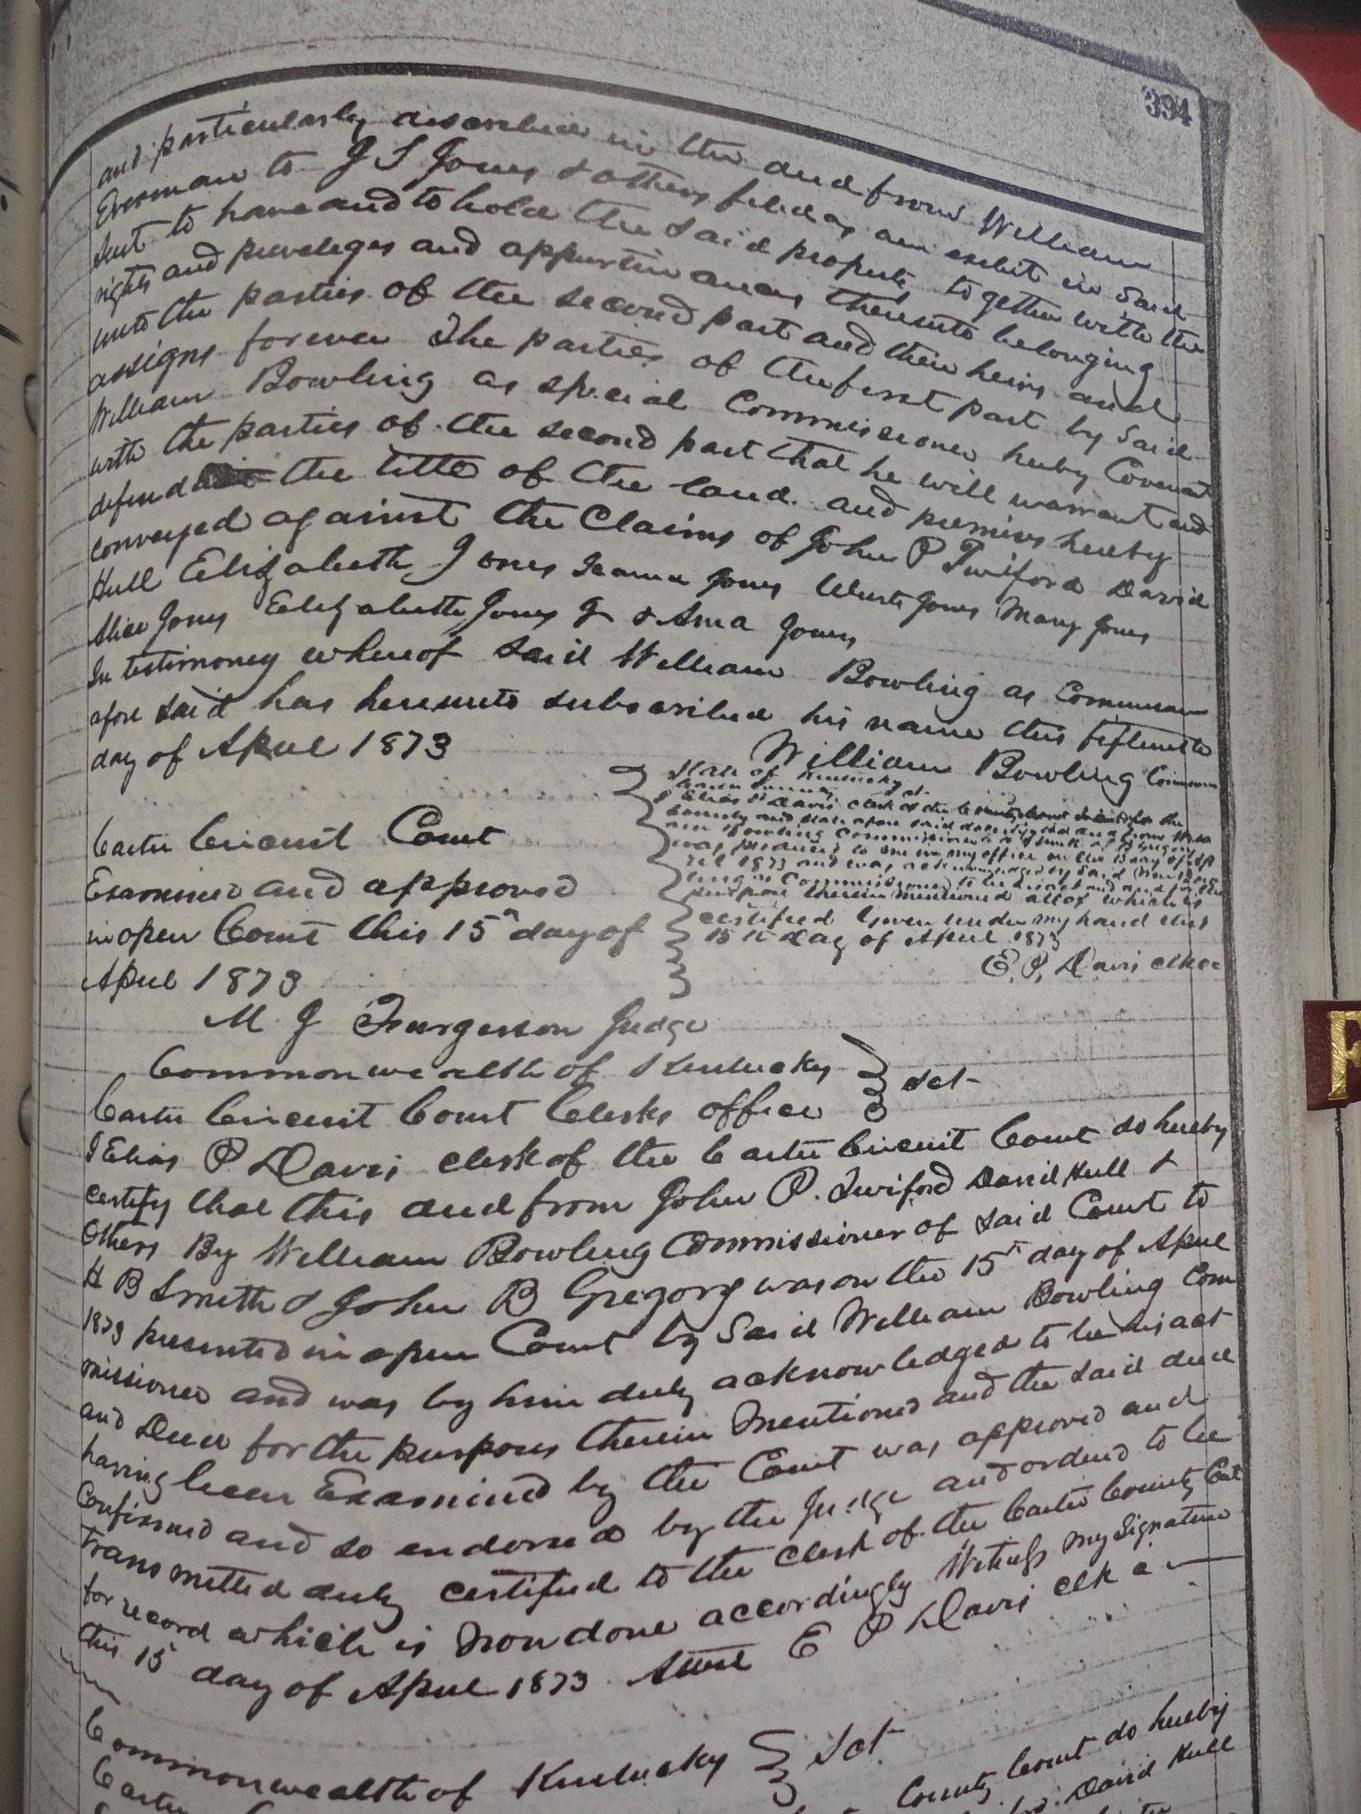 394
and particularly described in the deed from William
Everman to J S Jones & others filed as an exebit in Said
Suit to have and to hold the Said property together with the
rights and priveleges and appurtinances thereunto belonging
unto the parties of the second part and their heirs and
assigns forever The parties of the first part by Said
William Bowling as special Commissioner hereby Covenat
with the parties of the second part that he will warrant and
defend the title of the land and premises hereby
conveyed against the Claims of John P Twiford David
Hull Elizabeth Jones Jones Jones Mary Jones
Alice Jones Elizabeth Jones Jr & Ama Jones
In testimoney whereof Said William Bowling as Commissioner
afore said has hereunto subscribed his name this fifteenth
day of April 1873
William Bowling Commissioner
Carter Circuit Court
Examined and approved
in open Court this 15th day of
April 1873
M J Furgerson Judge
State of Kentucky
I Elias P Davis clerk of the County Court for the
County and State afore said do certify that
Bowling Commissioner to Smith & Gregory
was produced to me in my office on the 15 day of Ap
ril 1873 and was acknowledged by Said Wm Bow
ling as Commissioner to be his act and deed for the
purpose therein mentioned all of which is
certified Given under my hand this
15th day of April 1873
E. P. Davis clk
Commonwealth of Kentucky
Carter Circuit Court Clerks office } sct
I Elias P Davis clerk of the Carter Circuit Court do hereby
certify that this deed from John P. Twiford David Hull &
Others By William Bowling Commissioner of Said Court to
H B Smith & John B Gregory was on the 15th day of April
1873 presented in open Court by Said William Bowling Com
missioner and was by him duly acknowledged to be his act
and Deed for the purposes therein Mentioned and the Said deed
having been Examined by the Court was approved and
Confirmed and so endorsed by the Judge and ordered to be
transmitted duly certified to the clerk of the Carter County Cort
for record which is now done accordingly Witness my Signature
this 15 day of April 1873 Attest E P Davis clk
Commonwealth of Kentucky } Sct
Carter County Court do hereby
David Hull
F